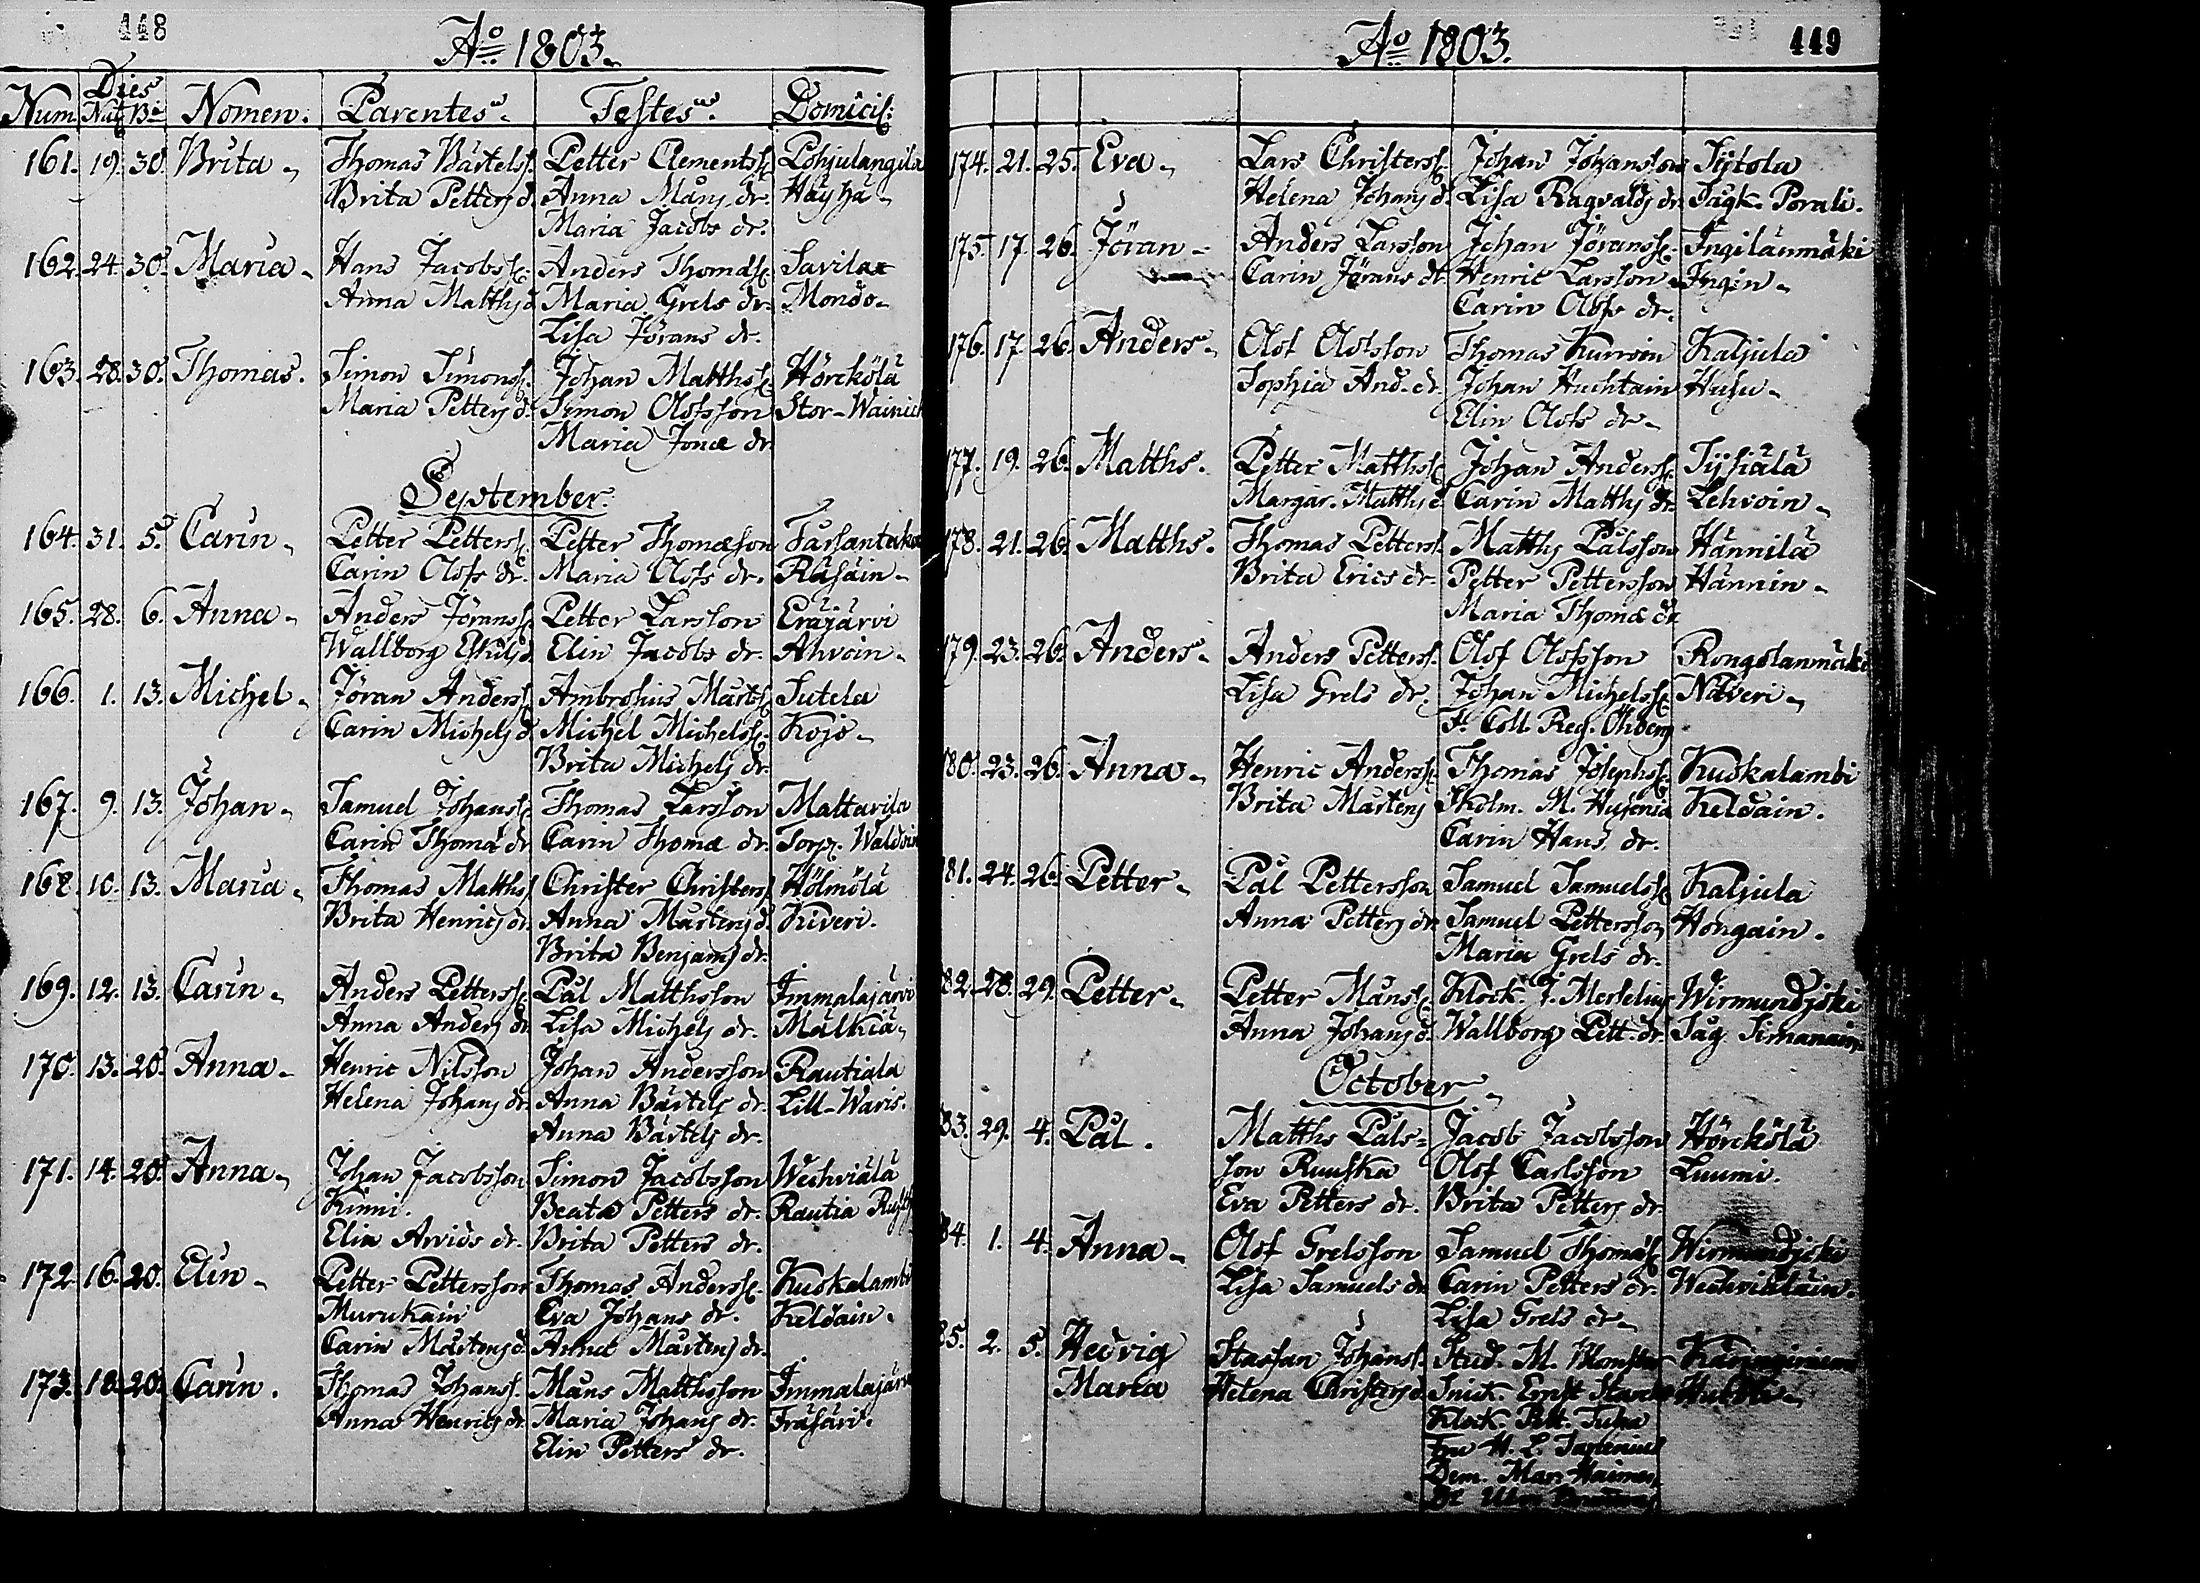 448
Ao 1803.
Num. Dies Nat. Bt. Nomen. Parentes. Testes. Domicil:
161. 19. 30. Brita Thomas Bärtelss. Petter Clementss. Pohjulangila
Brita Petters d. Anna Måns dr. Häyhä
Maria Jacobs dr.
162. 24. 30. Maria Hans Jacobss. Anders Thomæss. Savilax
Anna Matths d. Maria Grels dr. Mondo
Lisa Jörans dr.
163. 28. 30. Thomas. Simon Simonss. Johan Matthss. Hörckölä
Maria Petters d. Simon Olofsson Stor-Wainick
Maria Jonæ dr.
September.
164. 31. 5. Carin Petter Petterss. Petter Thomæson
Carin Olofs dr. Maria Olofs dr. Räsäin
165. 28. 6. Anna Anders Jöranss. Petter Larsson Eräjärvi
Wallborg Eskils d. Elin Jacobs dr. Ahvoin
166. 1. 13. Michel Jöran Anderss. Ambrosius Mårtss. Sutela
Carin Michels d. Michel Michelss. Kojo
Brita Michels dr.
167. 9. 13. Johan Samuel Johanss. Thomas Larsson Mattavila
Carin Thomæ dr. Carin Thomæ dr. Torp.
168. 10. 13. Maria Thomas Matthss. Christer Christerss. Hölmölä
Brita Henrics dr. Anna Mårtens d. Kiveri.
Brita Benjams dr.
169. 12. 13. Carin Anders Petterss. Pål Matthsson Immalajärvi
Anna Anders dr. Lisa Michels dr. Mälkiä
170. 13. 20. Anna Henric Nilsson Johan Andersson Rautiala
Helena Johans dr. Anna Bärtels dr. Lill-Waris.
Anna Bärtels dr.
171. 14. 20. Anna Johan Jacobsson Simon Jacobsson Wechviälä
Kinni. Beata Petters dr. Rautia
Elin Arvids dr. Brita Petters dr.
172. 16. 20. Elin Petter Pettersson Thomas Anderss. Kuskalambi
Murukain Eva Johans dr. Keldain.
Carin Mårtens d. Anna Mårtens dr.
173. 18. 20. Carin. Thomas Johanss. Måns Matthsson Immalajärvi
Anna Henrics dr. Maria Johans dr. Träsäri.
Elin Petters dr.
449
Ao 1803.
174. 21. 25. Eva Lars Christerss. Johan Johansson Sytola
Helena Johans d. Lisa Ragvalds dr. Sågk. Porali.
175. 17. 26. Jöran Anders Larsson Johan Jöranss. Ingilänmäki
Carin Jörans dr. Henric Larsson Ingin
Carin Olofs dr.
176. 17. 26. Anders Olof Olofsson Thomas Kurvoin Kaljula
Sophia And. dr. Johan Huchtain Husu
Elin Olofs dr.
177. 19. 26. Matths. Petter Matthss. Johan Anderss. Syhiälä
Margar. Matths d. Carin Matths dr. Lehvoin
178. 21. 26. Matths. Thomas Petterss. Matths Pålsson Hännilä
Brita Erics dr. Petter Pettersson Hännin
Maria Thomæ dr.
179. 23. 26. Anders Anders Petterss. Olof Olofsson Rongolanmäki
Lisa Grels dr. Johan Michelss. Näveri
F. Coll. Reg. Öhberg
180. 23. 26. Anna Henric Anderss. Thomas Josephss. Kuskalambi
Brita Mårtens Skolm. M. Keldain.
Carin Hans dr.
181. 24. 26. Petter Pål Pettersson Samuel Samuelss. Kaljula
Anna Petters dr. Samuel Pettersson Hongain.
Maria Grels dr.
182. 28. 29. Petter Petter Månss. Klock. J. Wirmundjoki
Anna Johans d. Wallborg Pett. dr. Såg.
October
183. 29. 4. Pål. Matths Påls= Jacob Jacobsson Hörckölä
son Ruuska Olof Carlsson Luumi.
Eva Petters dr. Brita Petters dr.
184. 1. 4. Anna Olof Grelsson Samuel Thomæss. Wirmundjoki
Lisa Samuels dr. Carin Petters dr. Wechviäläin.
Lisa Grels dr.
185. 2. 5. Hedvig Staffan Johanss. Stud. M.
Maria Helena Christers d. Snick. Ernst
Klock. Pett.
Fru H. L.
Dem. Mar.